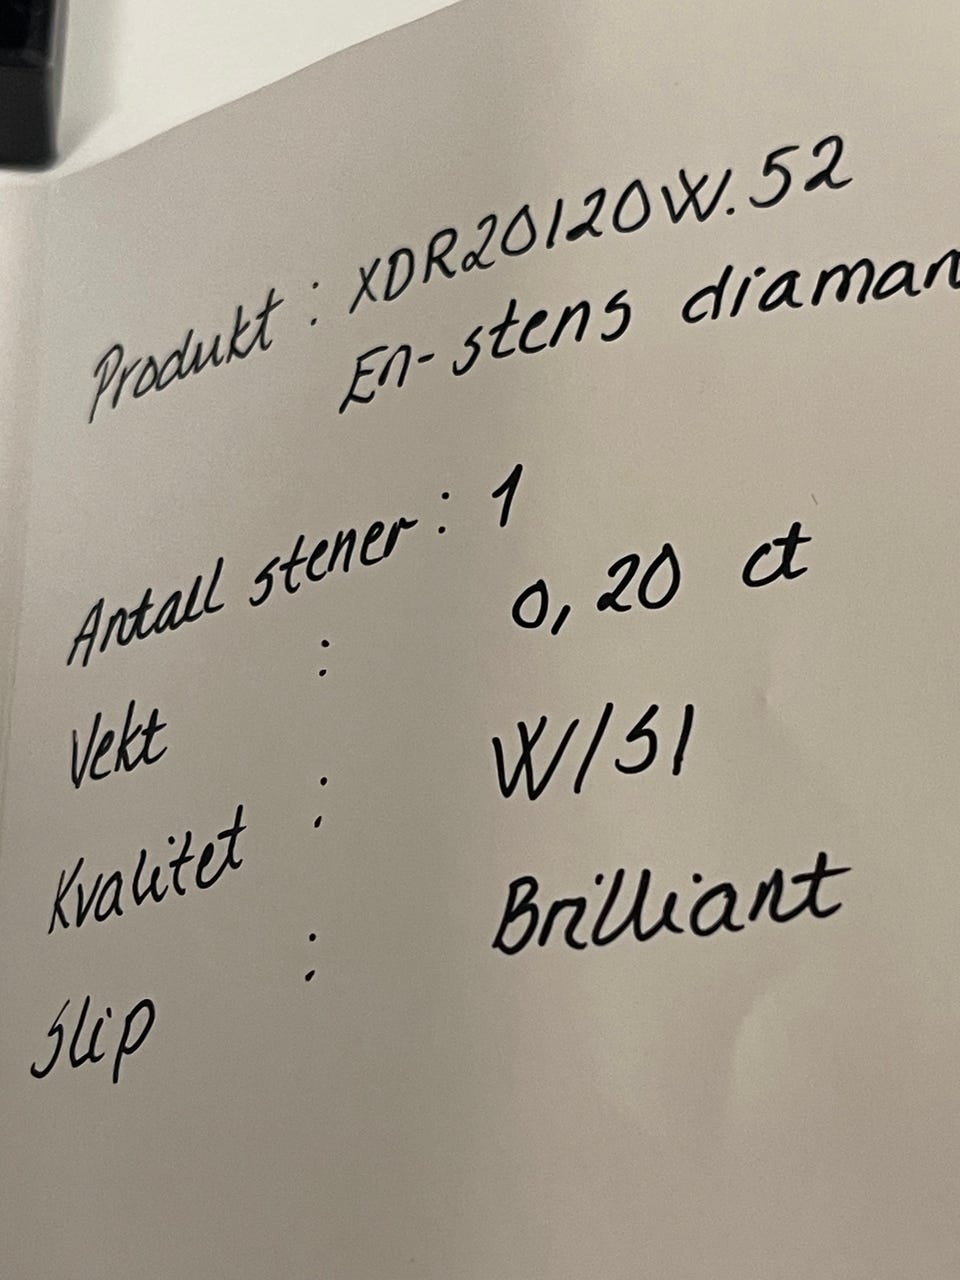 Produkt : XDR20120W.52
En-stens diaman
Antall stener : 1
Vekt : 0,20 ct
Kvalitet : W/SI
Slip : Brilliant